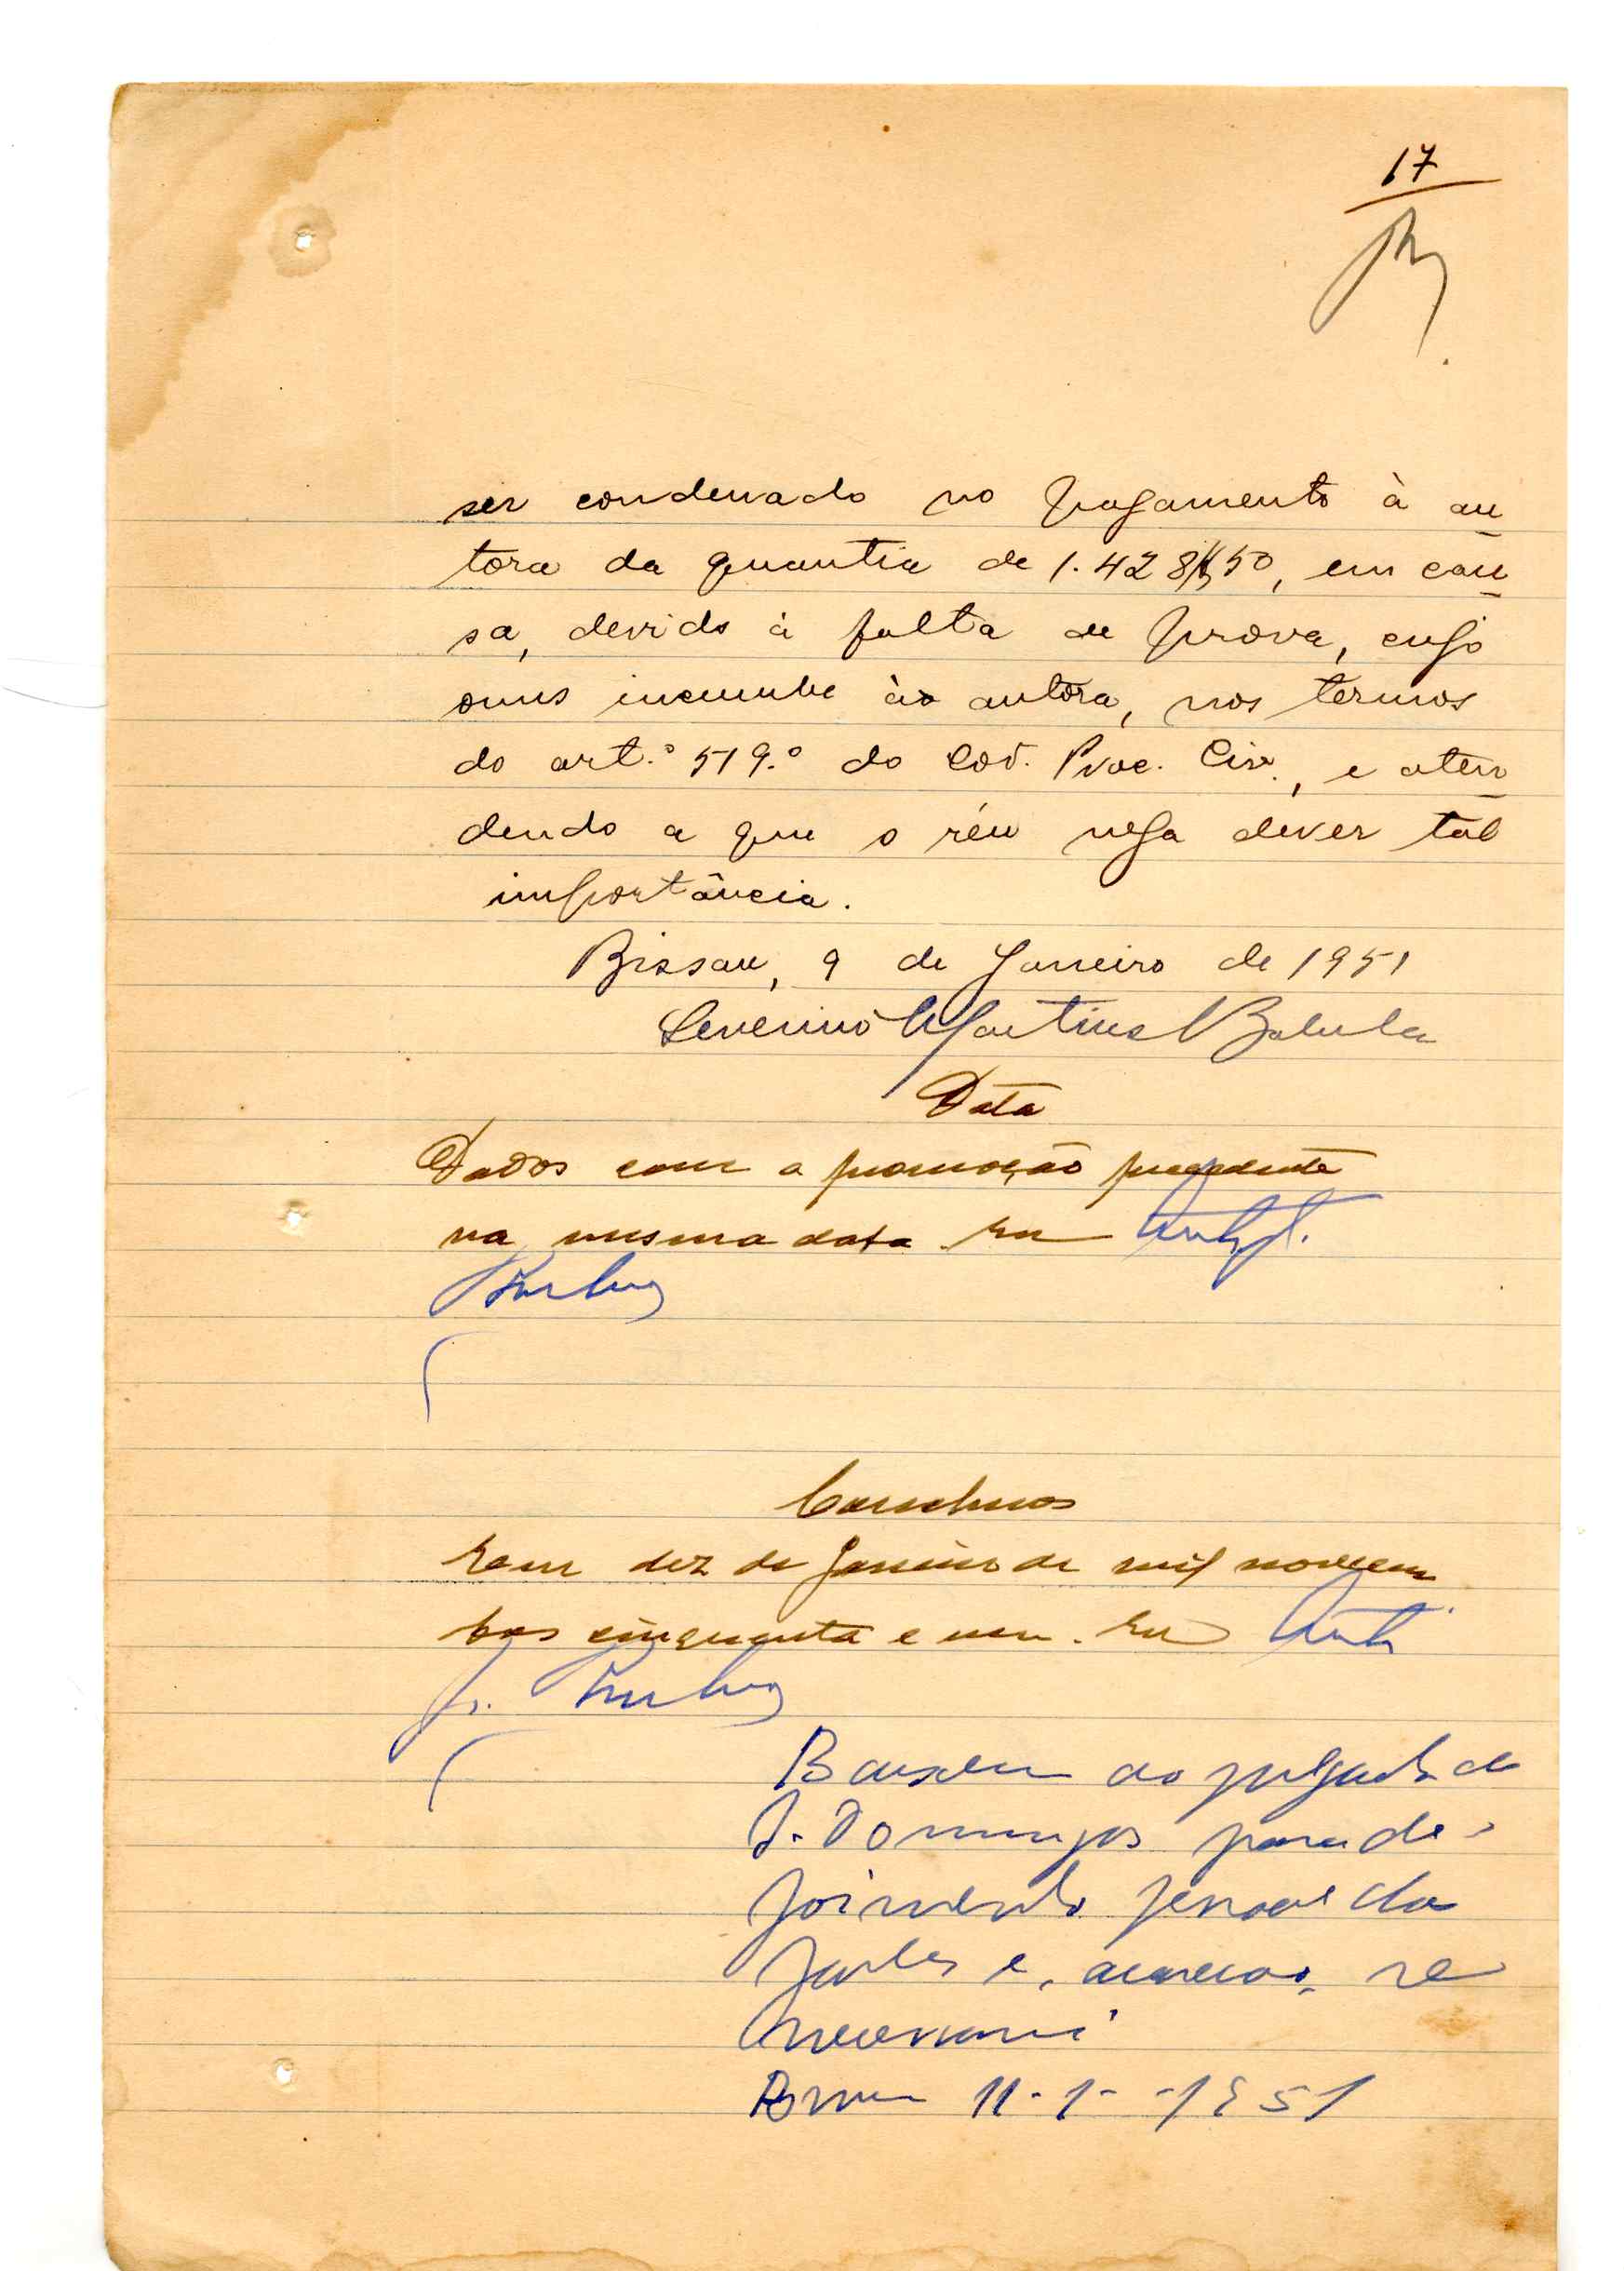 17
ser condenado no pagamento à au
tora da quantia de 1.428$50, em cau
sa, devido à falta de prova, cujo
onus incumbe ào autora, nos termos
do art.º 519.º do Cod. Proc. Civ., e aten
dendo a que o réu nega dever tal
importância.
Bissau, 9 de Janeiro de 1951
Severino Martins Balula
Data
Dados com a promoção precedente
na mesma data. Eu
Conclusos
Em dez de Janeiro de mil novecen
tos cinquenta e um. Eu
Baixem ao julgado de
S. Domingos para de-
poimento pessoal das
partes e, acareação, se
necessário
Bissau 11-1-1951